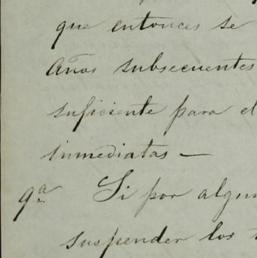 que entonces se
Años subsecuentes
suficiente para el
inmediatas —
9ª Si por algun
suspender los